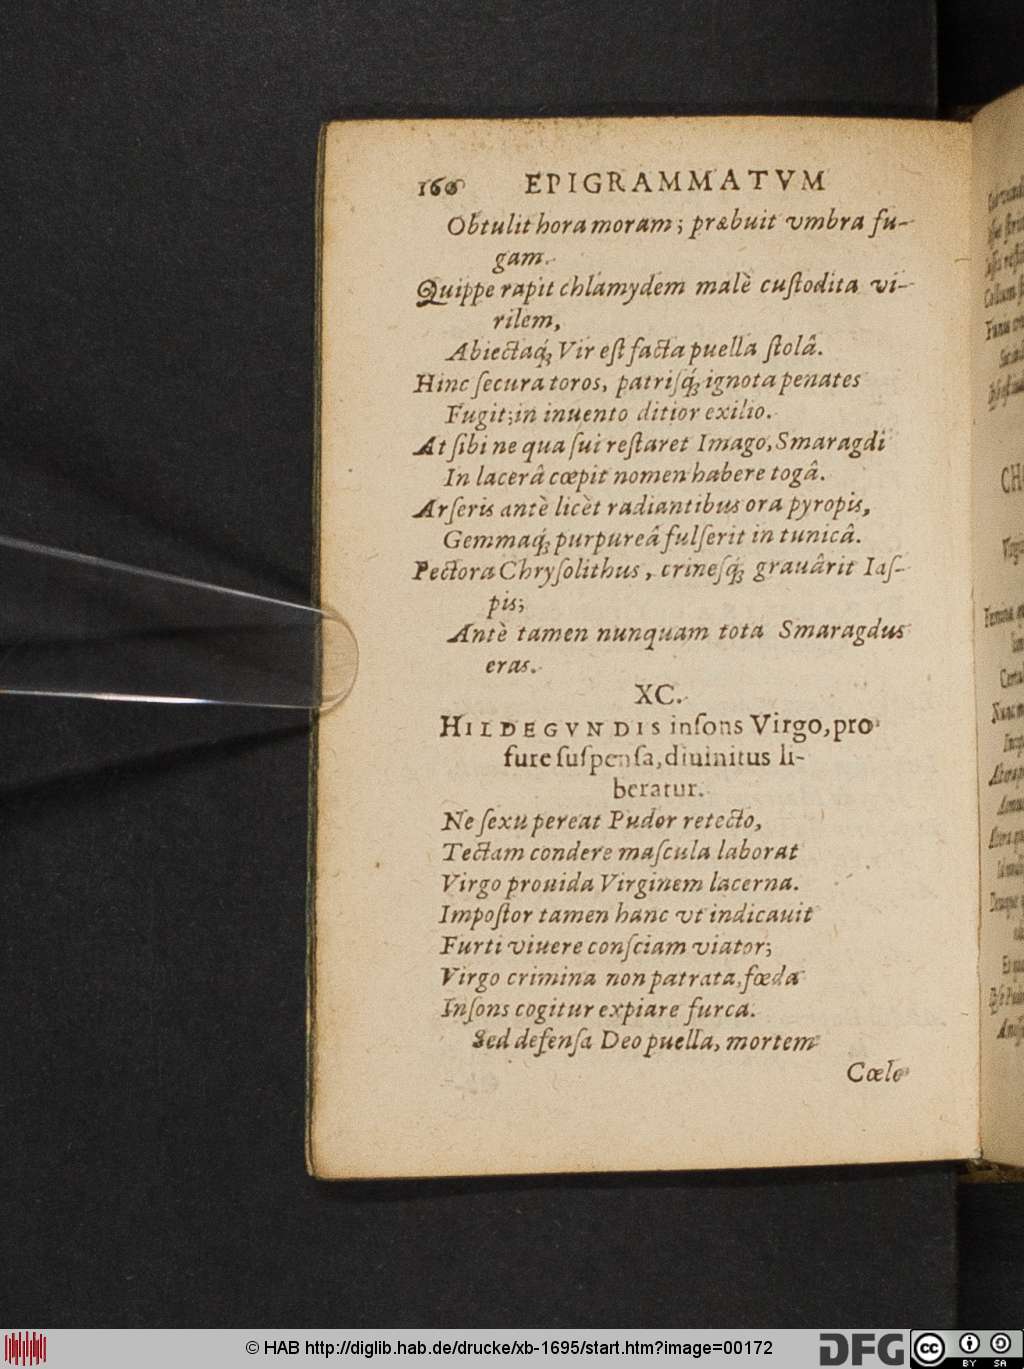 166 EPIGRAMMATVM
Obtulit hora moram; præbuit vmbra fu-
gam.
Quippe rapit chlamydem malè cuſtodita vi-
rilem,
Abiectaq́; Vir eſt facta puella ſtolâ.
Hinc ſecura toros, patriſq́; ignota penates
Fugit; in inuento ditior exilio.
At ſibi ne qua ſui reſtaret Imago, Smaragdi
In lacerâ cœpit nomen habere togâ.
Arſeris antè licèt radiantibus ora pyropis,
Gemmaq́; purpureâ fulſerit in tunicâ.
Pectora Chryſolithus, crineſq́; grauârit Iaſ-
pis;
Antè tamen nunquam tota Smaragdus
eras.
XC.
HILDEGVNDIS inſons Virgo, pro
fure ſuſpenſa, diuinitus li-
beratur.
Ne ſexu pereat Pudor retecto,
Tectam condere maſcula laborat
Virgo prouida Virginem lacerna.
Impoſtor tamen hanc vt indicauit
Furti viuere conſciam viator;
Virgo crimina non patrata, fœda
Inſons cogitur expiare furca.
Sed defenſa Deo puella, mortem
Cœlo
© HAB http://diglib.hab.de/drucke/xb-1695/start.htm?image=00172
DFG
cc BY SA